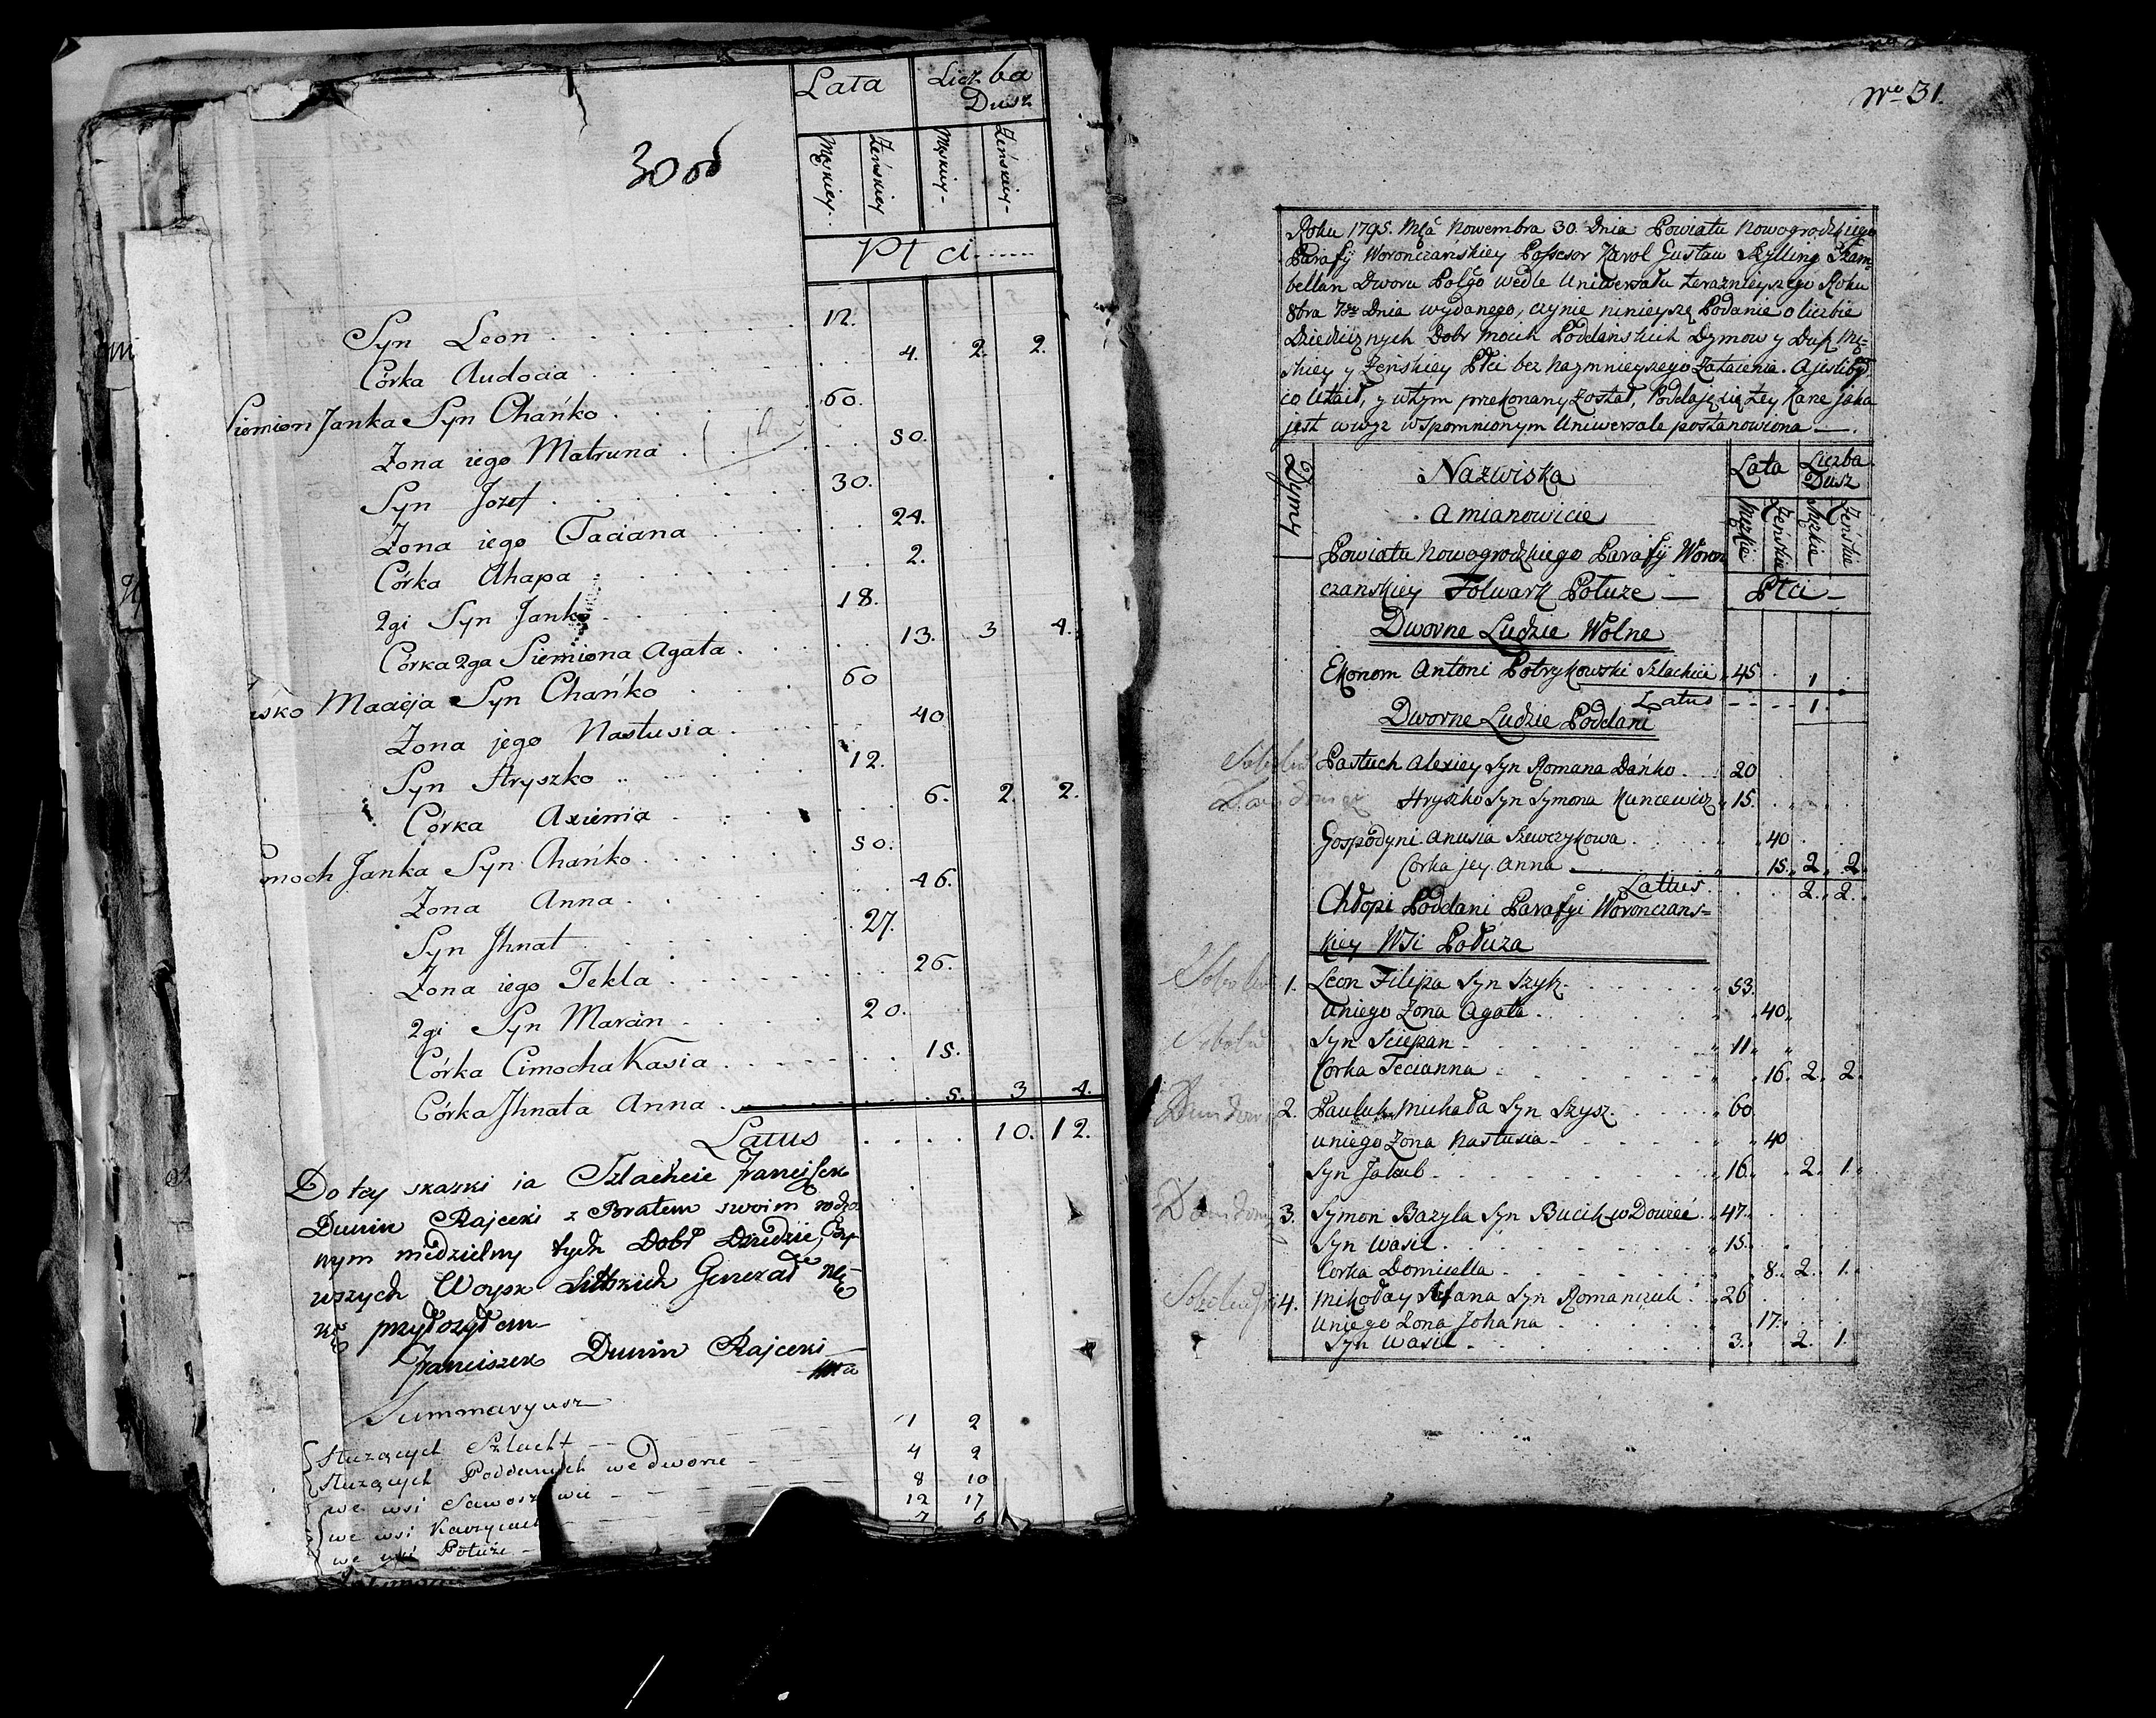 Lata Liczba Dusz
30 od
Męskiey Żeńskiey Męskiey Żeńskiey
Płci
Syn Leon 12.
Córka Audocia 4. 2. 2.
Siemion Janka Syn Chańko 60.
Żona iego Matruna 50.
Syn Jozef 30.
Żona iego Taciana 24.
Córka Ahapa 2.
2gi Syn Janko 18.
Córka 2ga Siemiona Agata 13. 3 4.
Macieja Syn Chańko 60
Żona jego Nastusia 40
Syn Hryszko 12.
Córka Axienia 6. 2. 2.
Janka Syn Chańko 50.
Żona Anna 46.
Syn Jhnat 27.
Żona iego Tekla 26.
2gi Syn Marcin 20.
Córka Cimocha Kasia 15.
Córka Jhnata Anna 5. 3 4.
Latus 10. 12.
Do tey skazki ia Szlachcic Franciszek
Dunin Rajecki z Bratem swoim rodzo
nym niedzielny tych Dobr Dziedzic, 
wszych Woysk Littskich Generał
kę przyłożyłem
Franciszek Dunin Rajecki
Summaryusz
Służących Szlacht 1 2
Służących Poddanych we dworze 4 2
we wsi 8 10
we wsi 12 17
we wsi Połuże 7 6
Nro 31.
Roku 1795. Mca Nowembra 30. Dnia Powiatu Nowogrodzkiego
Parafij Woronczańskiey Possesor Karol Gustaw Szylling Szam-
bellan Dworu Polgo wedle Uniwersału teraznieyszego Roku
8bra 7go Dnia wydanego, czynie ninieyszę Podanie o liczbie
Dziedzicznych Dobr moich Poddańskich Dymow y Dusz Mę-
skiey y Żeńskiey Płci bez naymnieyszego Zataienia. A jesliby
co Utaił, y wtym przekonany został, Poddaję się tey Karze jaka
jest w wyz wspomnionym Uniwersale postanowiona
Dymy Nazwiska Lata Liczba Dusz
Amianowicie Męzkie Żeńskie Męzkie Żeńskie
Powiatu Nowogrodzkiego Parafij Woron
czanskiey Folwark Połuze Płci
Dworne Ludzie Wolne
Ekonom Antoni Potrykowski Szlachcic 45 1
Latus 1.
Dworne Ludzie Poddani
Pastuch Alexiey Syn Romana Dańko 20
Hryszko Syn Symona Kuncewicz 15.
Gospodyni Anusia Szewczykowa 40
Corka jey Anna 15. 2. 2.
Lattus 2. 2.
Chłopi Poddani Parafyi Woronczans-
kiey Wsi Połuza
1. Leon Filipa Syn Szyk 53.
Uniego Żona Agata 40
Syn Sciepan 11
Corka Tecianna 16. 2. 2.
2. Pauluk Michała Syn Szysz 60
uniego Żona Nastusia 40
Syn Jakub 16. 2. 1.
3. Symon Bazyla Syn Bucik wDowiec 47.
Syn Wasil 15.
Corka Domicella 8. 2. 1.
4. Mikołay Stefana Syn Romanczuk 26
Uniego Żona Johana 17.
Syn Wasil 3. 2. 1.